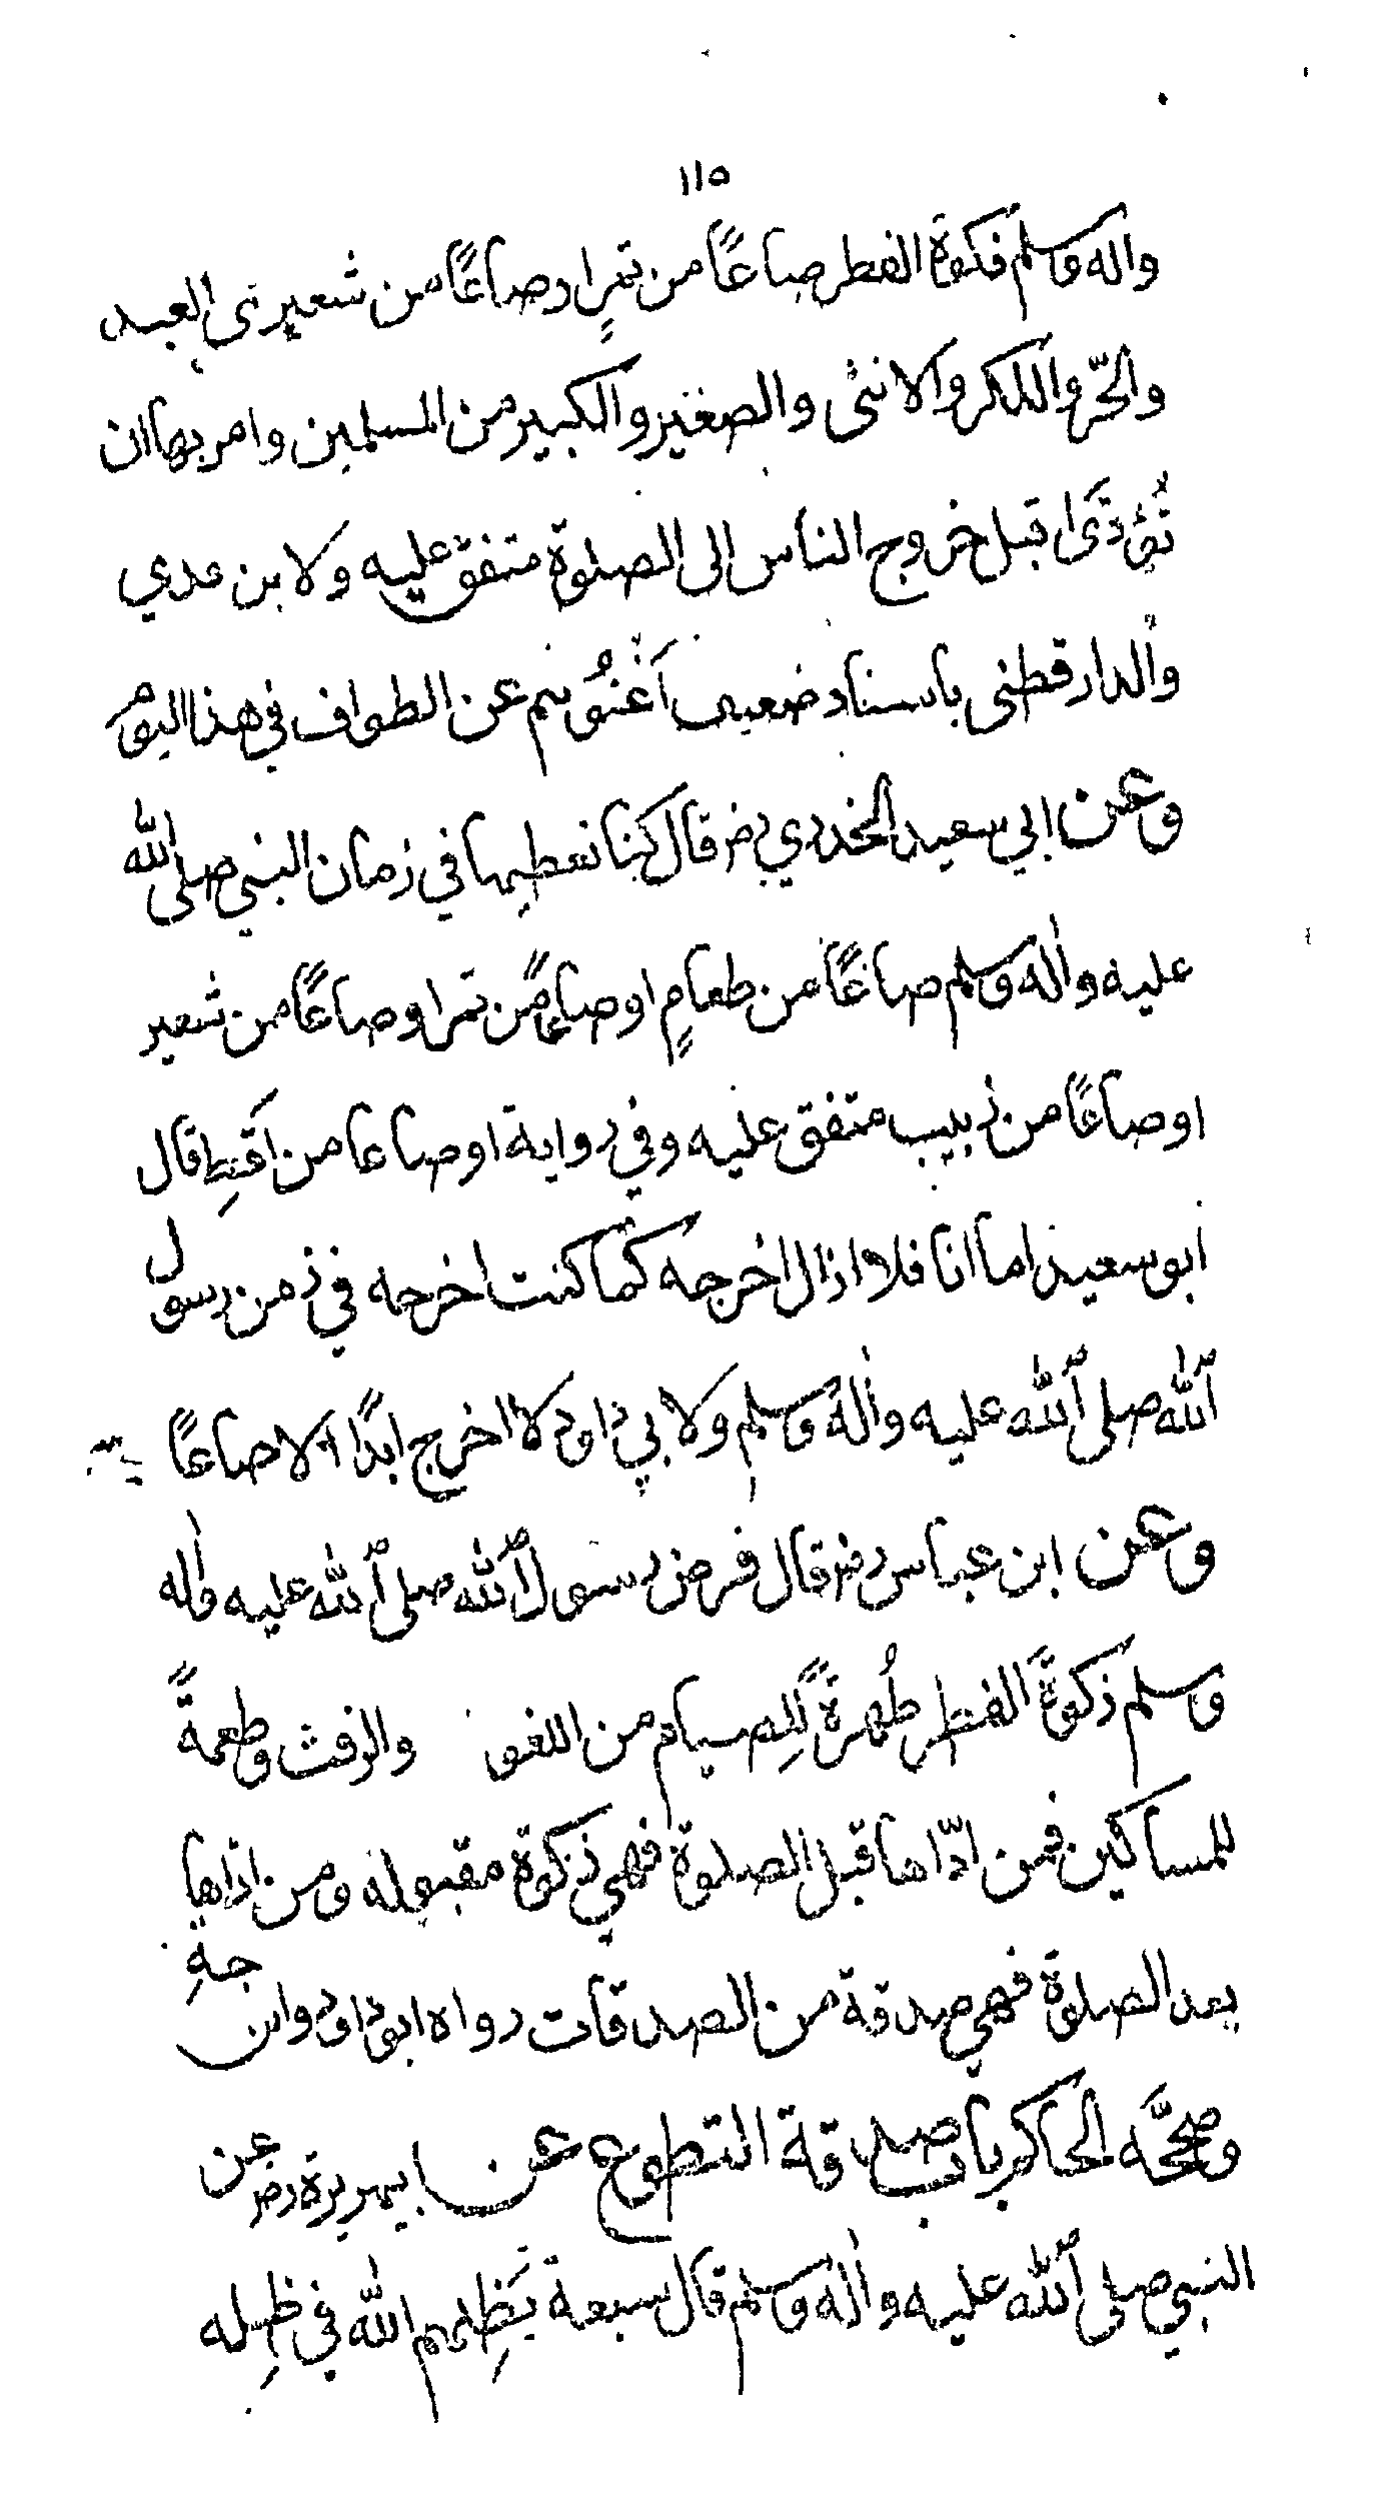 ١١٥
واله وسلم زكوة الفطر صاعًا من تمرٍ او صاعًا من شعير على العبد
والحرّ والذكر والانثى والصغير والكبير من المسلمين وامر بها ان
تُؤدَّى قبل خروج الناس الى الصلوة متفق عليه ولا بن عدي
والدار قطنى باسناد ضعيف اَغنُوهم عن الطواف في هذا اليوم
وعن ابي سعيد الخدري رض قال كنا نعطيها في زمان النبي صلى الله
عليه واٰله وسلم صاعًا من طعامٍ او صاعًا من تمر او صاعًا من شعير
او صاعًا من زبيب متفق عليه وفي رواية او صاعا من اَقِطٍ قال
ابو سعيد اما انا فلا ازال اخرجه كما كنت اخرجه في زمن رسول
الله صلى الله عليه واٰله وسلم ولا بي داود لا اخرج ابدًا الا صاعًا
وعن ابن عباس رض قال فرض رسول الله صلى الله عليه واٰله
وسلم زكوةَ الفطر طُهرةً لِلصيام من اللغو والرفث وطعمةً
للمساكين فمن ادّاها قبل الصلوة فهي زكوة مقبوله ومن اداها
بعد الصلوة فهي صدقة من الصدقات رواه ابو داود وابن
جةِ
وصحَّحه الحاكم باب صدقة التطوع عن ابيهريرة رض عن
النبي صلى الله عليه واٰله وسلم قال سبعة يَظِلهم الله في ظِله